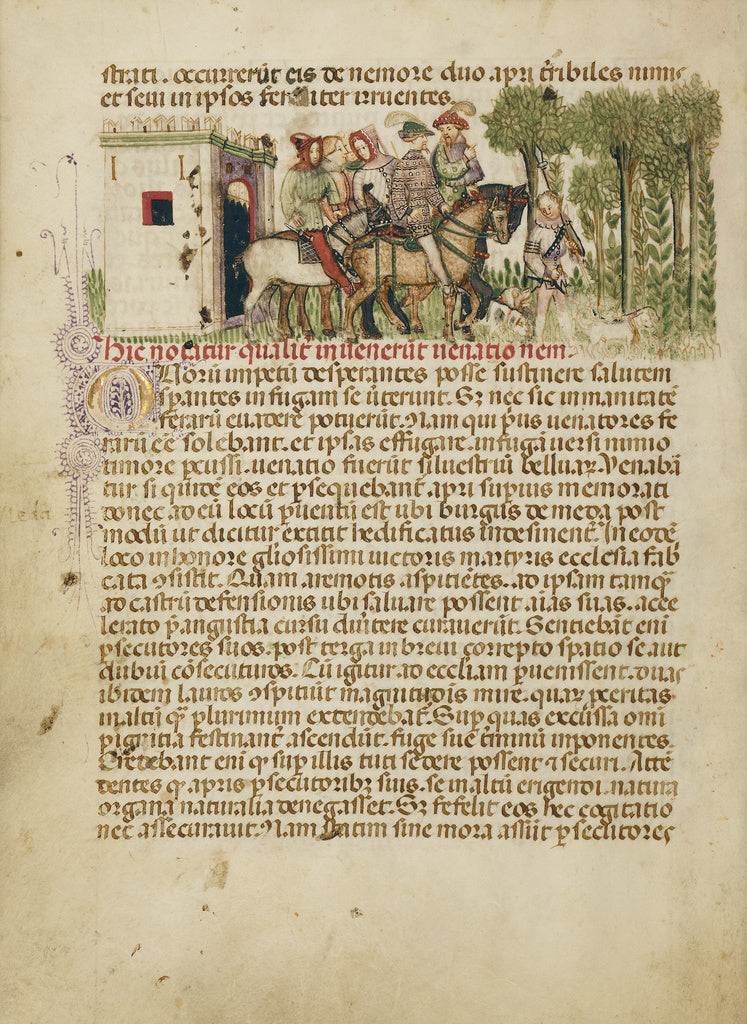 strati . occurrerūt eis de nemore duo apri tribiles nimis
et seui in ipsos feraliter irruentes.
Hic notatur qualit inuenerūt uenationem.
Quorū impetū desperantes posse sustinere salutem
spantes in fugam se uterunt. Sz nec sic inmanitatē
ferarū euadere potuerūt. Nam qui prius uenatores fe
rarū eē solebant. et ipsas effugare. in fugā uersi nimio
timore pcussi. uenatio fuerūt siluestriū belluaꝝ. Venabā
tur si quidē eos et psequebant apri supius memorati
donec ad eū locū puentū est ubi burgus de meda post
modū ut dicitur extitit hedificatus indesinent. In eodē
loco in honore gliosissimi uictoris martyris ecclesia fab
cata ꝯsistit. Quam a remotis aspitiētes. ad ipsam tamꝙ
ad castrū defensionis ubi saluare possent aīas suas. acce
lerato p angustia cursu diutere curauerūt. Sentiebāt eni
psecutores suos. post terga in breui correpto spatio se aut
dubui cōsecuturos. Cū igitur ad eccliam puenissent. duas
ibidem lauros ꝯspitiūt magnitudis mire. quaꝝ pceritas
in altū ꝙ plurimum extendebat. Sup quas excussa omi
pigritia festinant ascendūt. fuge sue tminū inponentes.
Credebant eni ꝙ sup illis tuti sedere possent ⁊ securi. Attē
dentes ꝙ apris psecutoribꝫ suis. se in altū erigendi. natura
organa naturalia denegasset. Sz fefelit eos hec cogitatio
nec assecurauit. Nam statim sine mora assūt psecutores